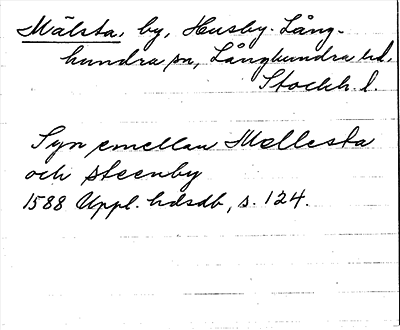 Mälsta, by, Husby-Lång-
hundra sn, Långhundra hd,
Stockh. l.
Syn emellan Mellesta
och Steenby
1588 Uppl. hdsdb, s. 124.